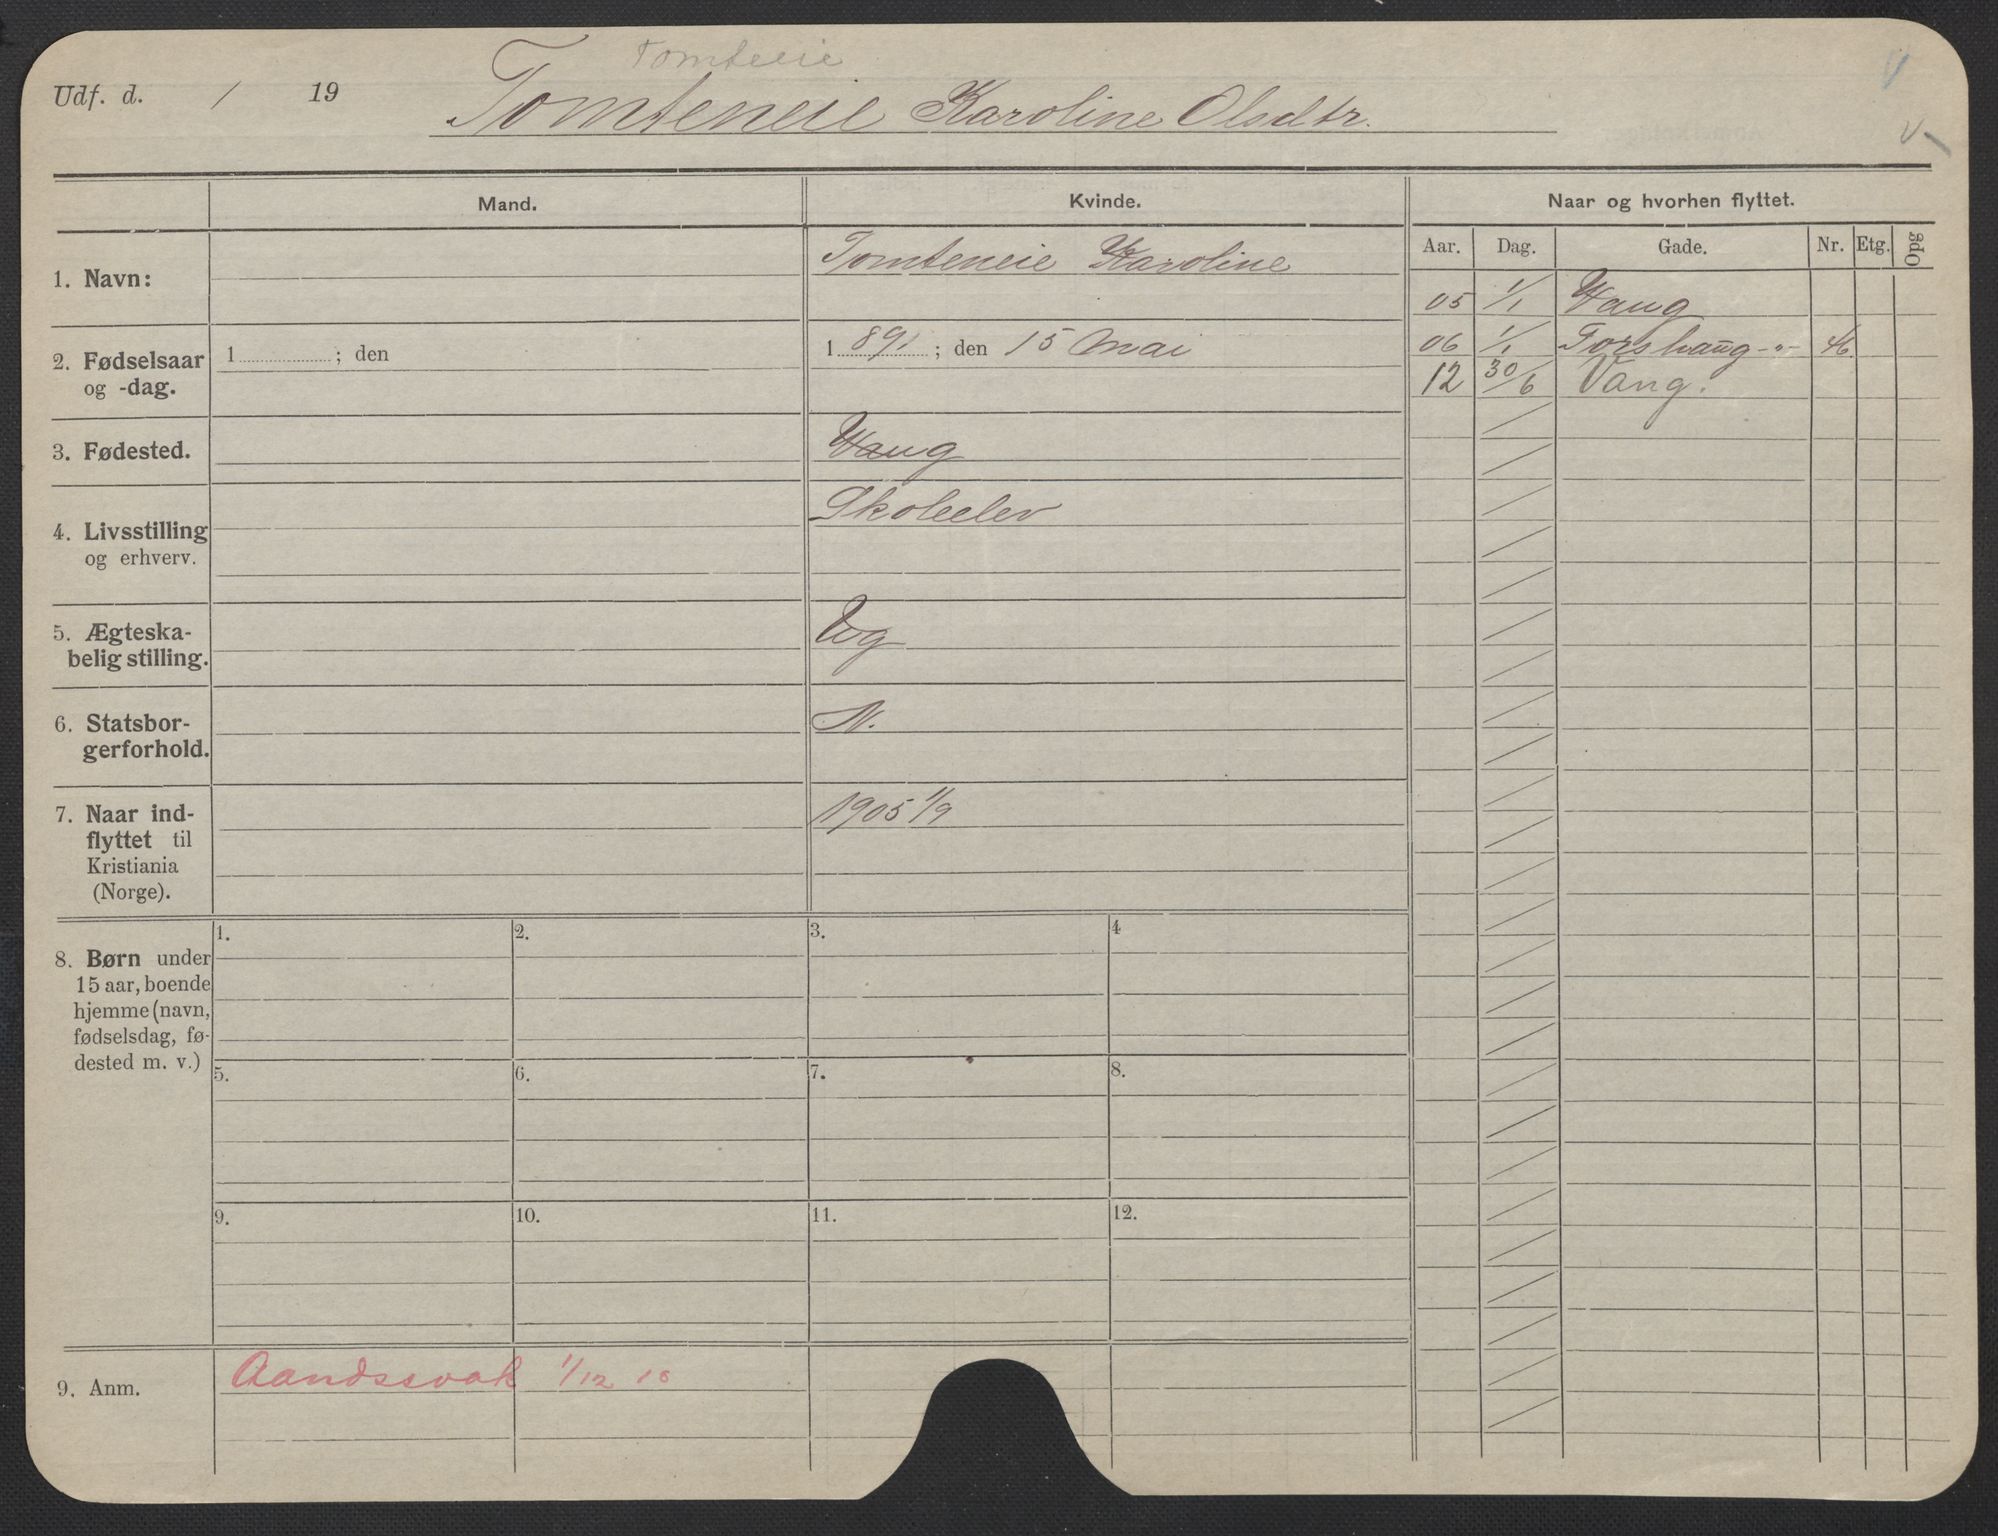 Tomteeie
Udf. d. / 19 Tomteneie Karoline Olsdtr.
Mand. Kvinde. Naar og hvorhen flyttet.
Aar. Dag. Gade. Nr. Etg. Opg
1. Navn: Tomteneie Karoline
05 1/1 Vang
2. Fødselsaar og -dag. 1 ; den 1 891 ; den 15 Mai
06 1/1 Torshaug -"-
12 30/6 Vang.
3. Fødested. Vang
4. Livsstilling og erhverv. Skoleelev
5. Ægteska-
belig stilling. Ug
6. Statsbor-
gerforhold. N.
7. Naar ind-
flyttet til
Kristiania
(Norge). 1905 1/9
8. Børn under
15 aar, boende
hjemme (navn,
fødselsdag, fø-
dested m. v.)
1. 2. 3. 4
5. 6. 7. 8.
9. 10. 11. 12.
9. Anm. Aandssvak 1/12